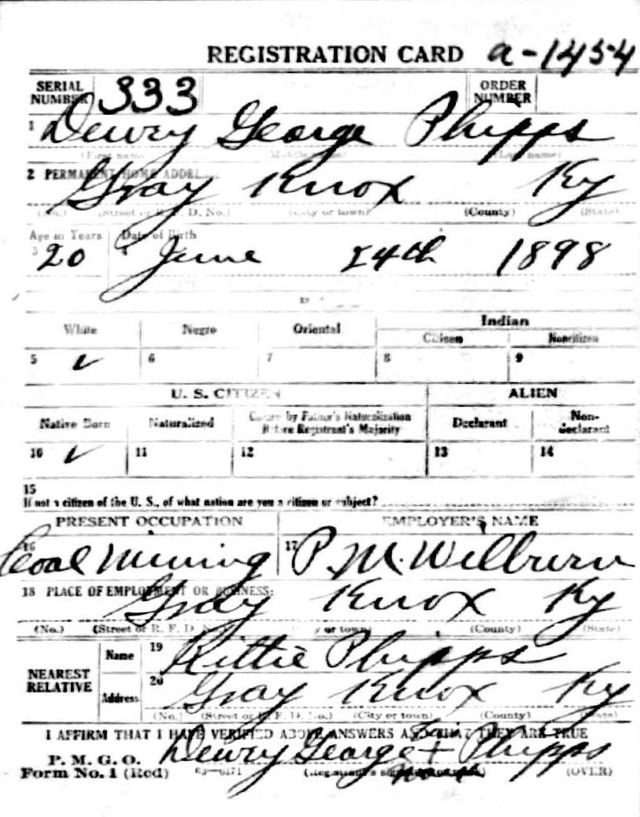 REGISTRATION CARD a-1454
SERIAL NUMBER 333 ORDER NUMBER
1 Dewry George Phipps
(First name) (Last name)
2 PERMANENT HOME ADDR
Gray Knox Ky
(No.) (Street or R. F. D. No.) (City or town) (County) (State)
Age in Years Date of Birth
3 20 4 June 24th 1898
White Negro Oriental Indian
Citizen Noncitizen
5 ✓ 6 7 8 9
U. S. CITIZEN ALIEN
Native Born Naturalized Citizen by Father's Naturalization Before Registrant's Majority Declarant Non-declarant
10 ✓ 11 12 13 14
15
If not a citizen of the U. S., of what nation are you a citizen or subject?
PRESENT OCCUPATION EMPLOYER'S NAME
16 Coal Mining 17 P. M. Wilburn
18 PLACE OF EMPLOYMENT OR BUSINESS:
Gray Knox Ky
(No.) (Street or R. F. D. No.) (City or town) (County) (State)
NEAREST RELATIVE
Name 19 Kittie Phipps
Address 20 Gray Knox Ky
(No.) (Street or R. F. D. No.) (City or town) (County) (State)
I AFFIRM THAT I HAVE VERIFIED ABOVE ANSWERS AND THAT THEY ARE TRUE
P. M. G. O.
Form No. 1 (Red) 03—6171 Dewry George + Phipps
(Registrant's signature or mark) (OVER)